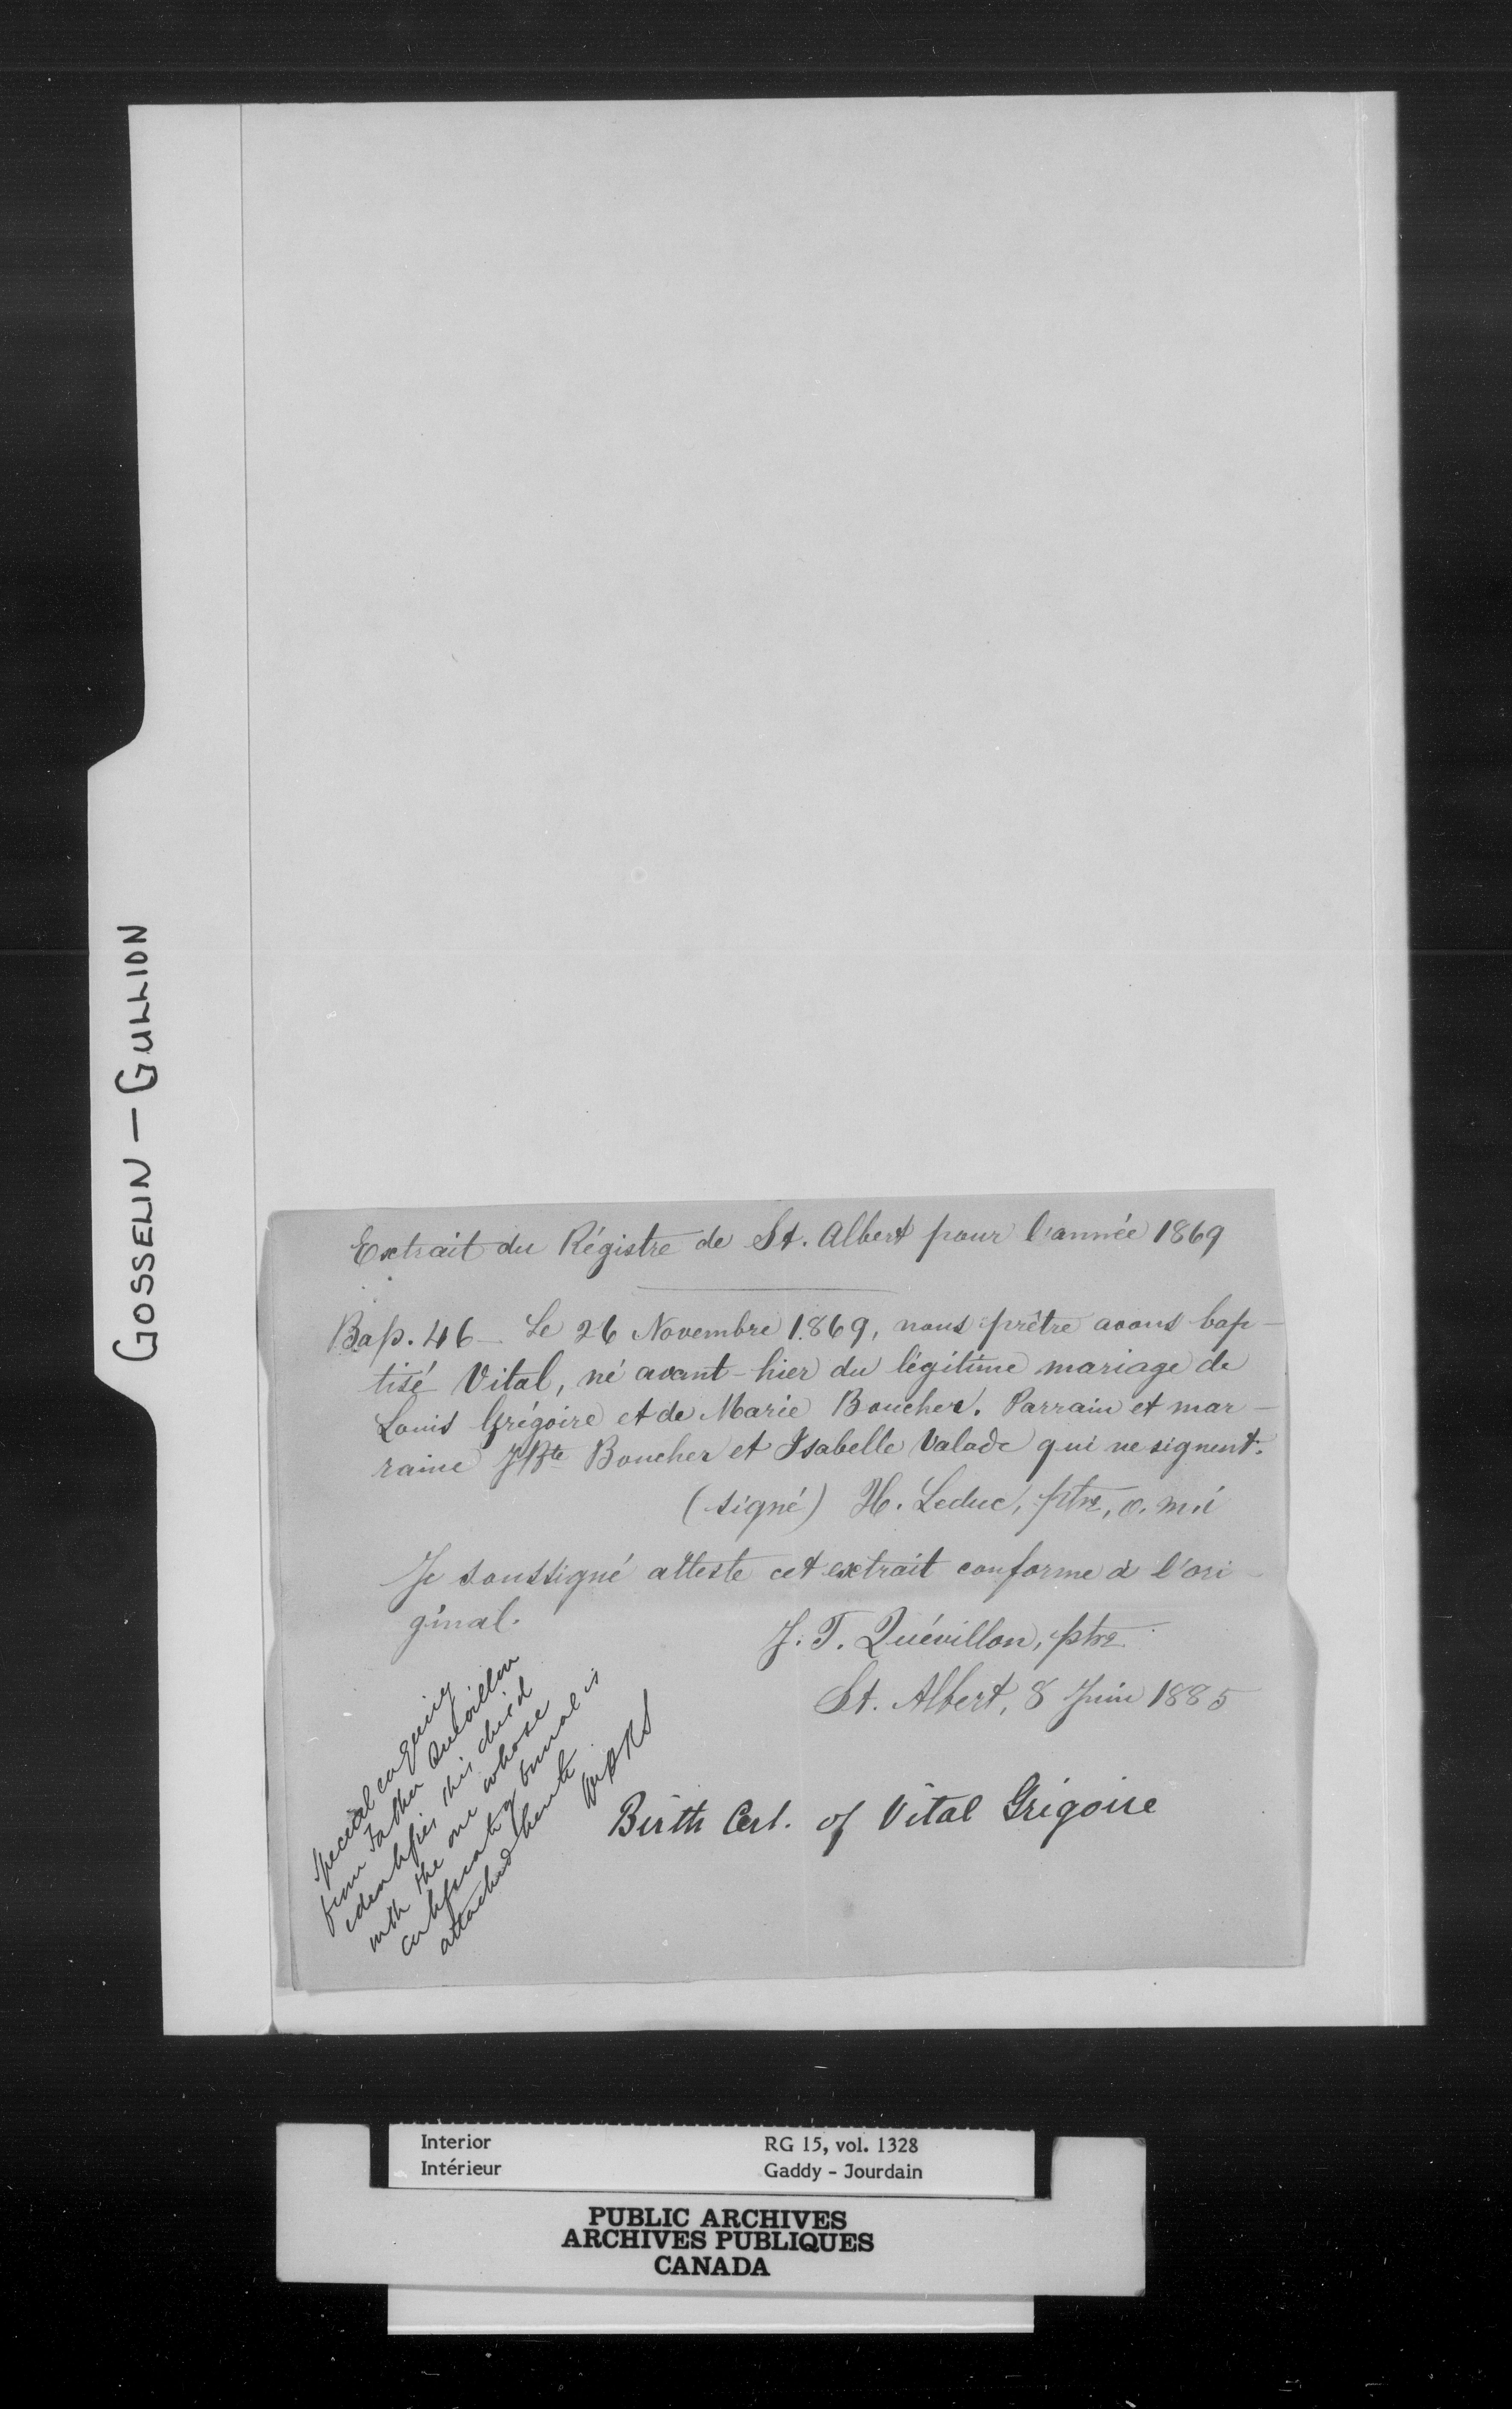 GOSSELIN — GULLION
Extrait du Régistre de St. Albert pour l'année 1869
Bap. 46 — Le 26 Novembre 1869, nous prêtre avons bap-
tisé Vital, né avant-hier du légitime mariage de
Louis Grégoire et de Marie Boucher. Parrain et mar-
raine J Bte Boucher et Isabelle Valade qui ne signent.
(signé) H. Leduc, ptre, o. m. i
Je soussigné atteste cet extrait conforme à l'ori-
ginal.
J. T. Quévillon, ptre
St. Albert, 8 Juin 1885
Special enquiry
from Father Quevillon
identifies this child
with the one whose
certificate of burial is
attached herewith
Birth Cert. of Vital Grégoire
Interior
Intérieur
RG 15, vol. 1328
Gaddy - Jourdain
PUBLIC ARCHIVES
ARCHIVES PUBLIQUES
CANADA